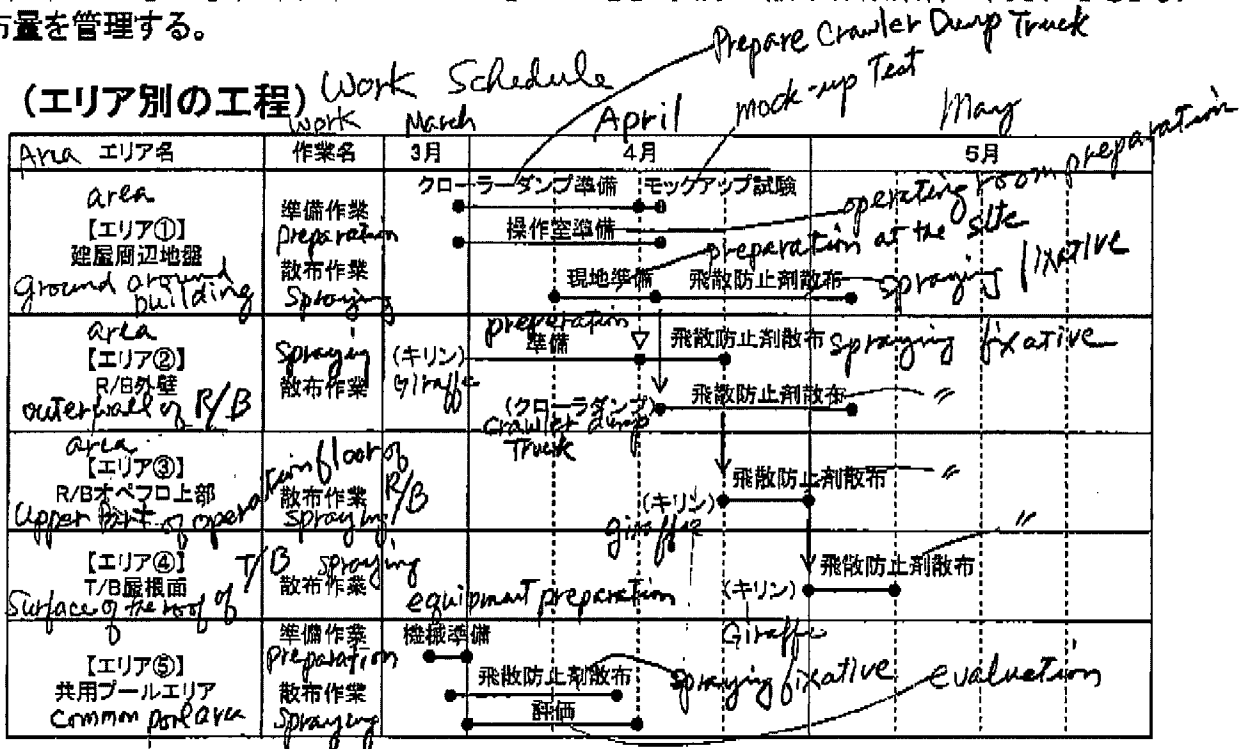 布量を管理する。
(エリア別の工程) Work Schedule
Prepare Crawler Dump Truck
mock-up Test
Work March April May
Area エリア名 作業名 3月 4月 5月
area
【エリア①】
建屋周辺地盤
ground around
building
準備作業
preparation
散布作業
Spraying
クローラーダンプ準備 モックアップ試験
操作室準備 operating room preparation
preparation at the site
現地準備 飛散防止剤散布 spraying fixative
area
【エリア②】
R/B外壁
outer wall of R/B
Spraying
散布作業
preparation
(キリン) 準備 飛散防止剤散布 spraying fixative
Giraffe
飛散防止剤散布 〃
(クローラダンプ)
Crawler dump
Truck
area
【エリア③】
R/Bオペフロ上部
Upper Part of operation floor of R/B
散布作業
Spraying
飛散防止剤散布 〃
(キリン)
giraffe
【エリア④】
T/B屋根面
Surface of the roof of T/B
spraying
散布作業
飛散防止剤散布 〃
(キリン)
Giraffe
【エリア⑤】
共用プールエリア
Common pool area
準備作業
preparation
散布作業
Spraying
equipment preparation
機械準備
飛散防止剤散布 Spraying fixative
評価 evaluation